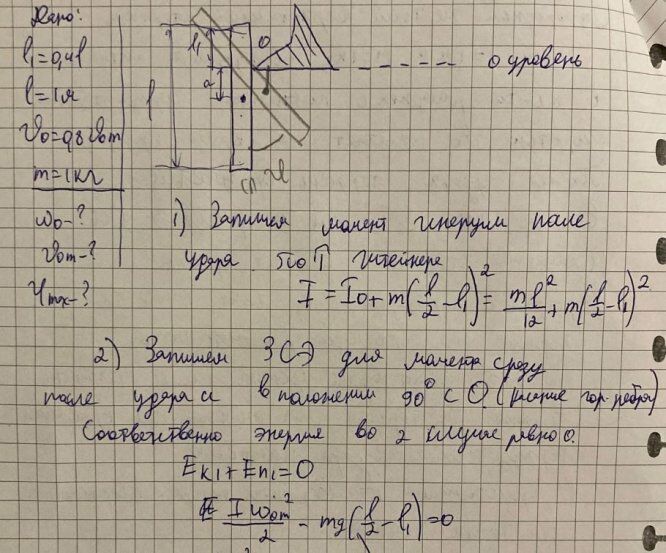 Дано:
l₁=0,4l
l=1м
V₀=0,8V₀m
m=1кг
ω₀-?
V₀m-?
φmax-?
l
l₁
a
O
φ
0 уровень
1) Запишем момент инерции после
удара по Т Штейнера
I = I₀ + m(l/2 - l₁)² = ml²/12 + m(l/2 - l₁)²
2) Запишем ЗСЭ для момента сразу
после удара и в положении 90° с О. (касание гор. ребра)
Соответственно энергия во 2 случае равно 0.
Eк₁ + Eп₁ = 0
Iω₀m²/2 - mg(l/2 - l₁) = 0